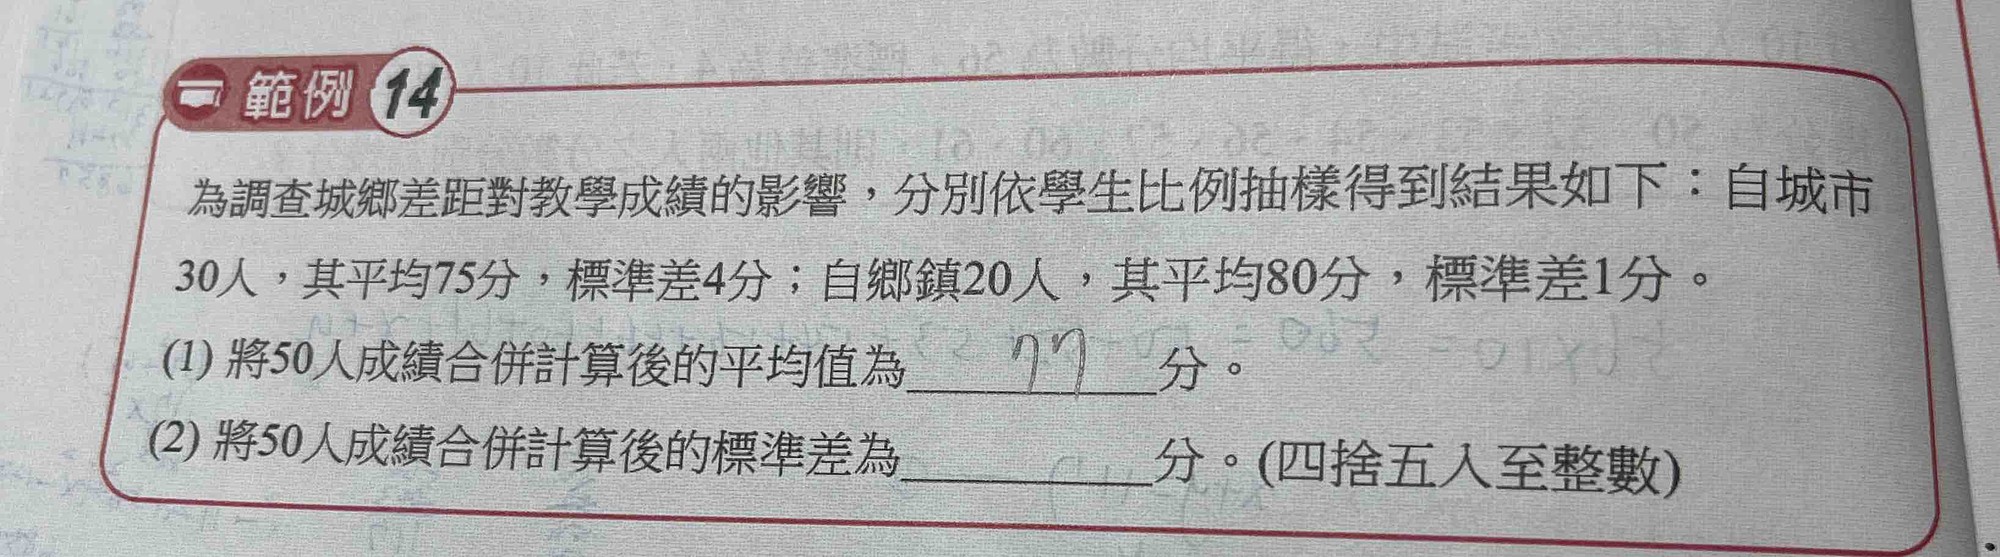 範例 14
為調查城鄉差距對教學成績的影響，分別依學生比例抽樣得到結果如下：自城市
30人，其平均75分，標準差4分；自鄉鎮20人，其平均80分，標準差1分。
(1) 將50人成績合併計算後的平均值為 77 分。
(2) 將50人成績合併計算後的標準差為______分。(四捨五入至整數)